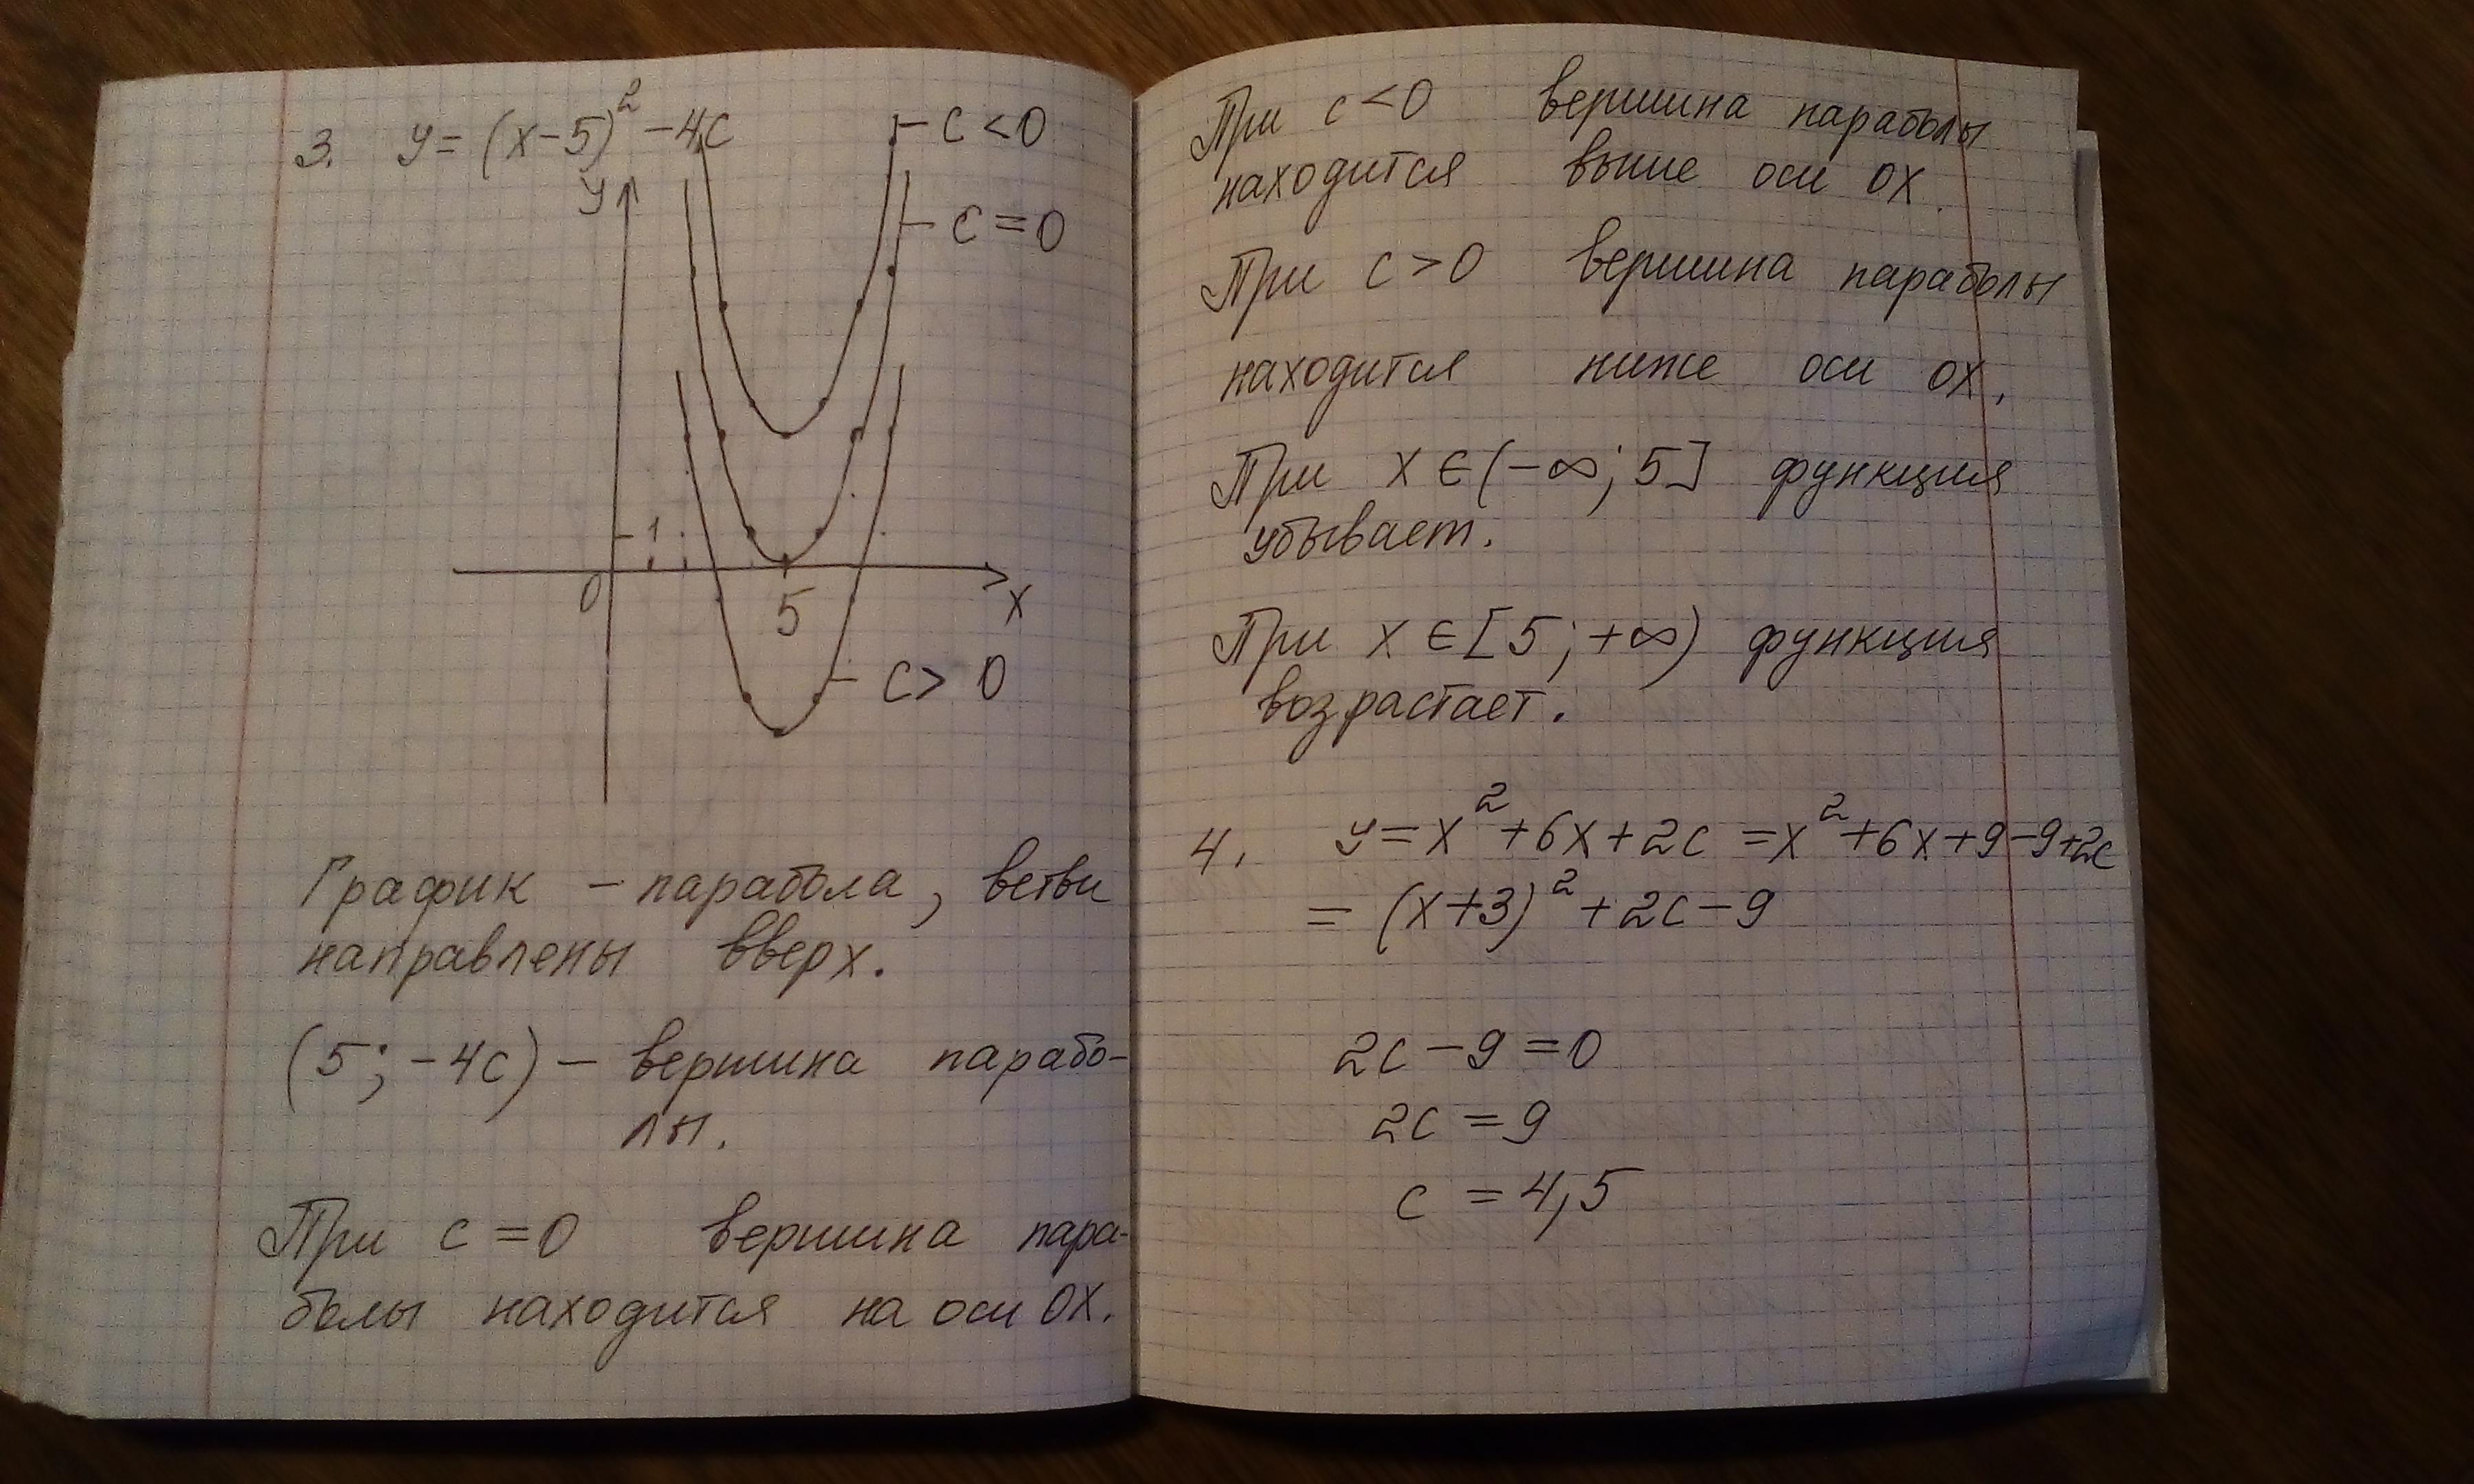 3. y = (x-5)² - 4c
y
c < 0
c = 0
1
0
5
x
c > 0
График - парабола, ветви
направлены вверх.
(5; -4c) - вершина парабо-
лы.
При c = 0 вершина пара-
болы находится на оси OX.
При c < 0 вершина параболы
находится выше оси OX.
При c > 0 вершина параболы
находится ниже оси OX.
При x ∈ (-∞; 5] функция
убывает.
При x ∈ [5; +∞) функция
возрастает.
4. y = x² + 6x + 2c = x² + 6x + 9 - 9 + 2c
= (x+3)² + 2c - 9
2c - 9 = 0
2c = 9
c = 4,5